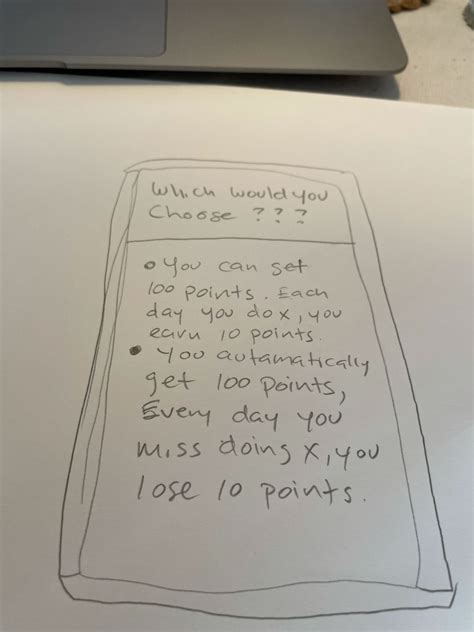 Which would you
Choose ???
• You can get
100 points. Each
day you do x, you
earn 10 points.
• You automatically
get 100 points,
Every day you
miss doing x, you
lose 10 points.